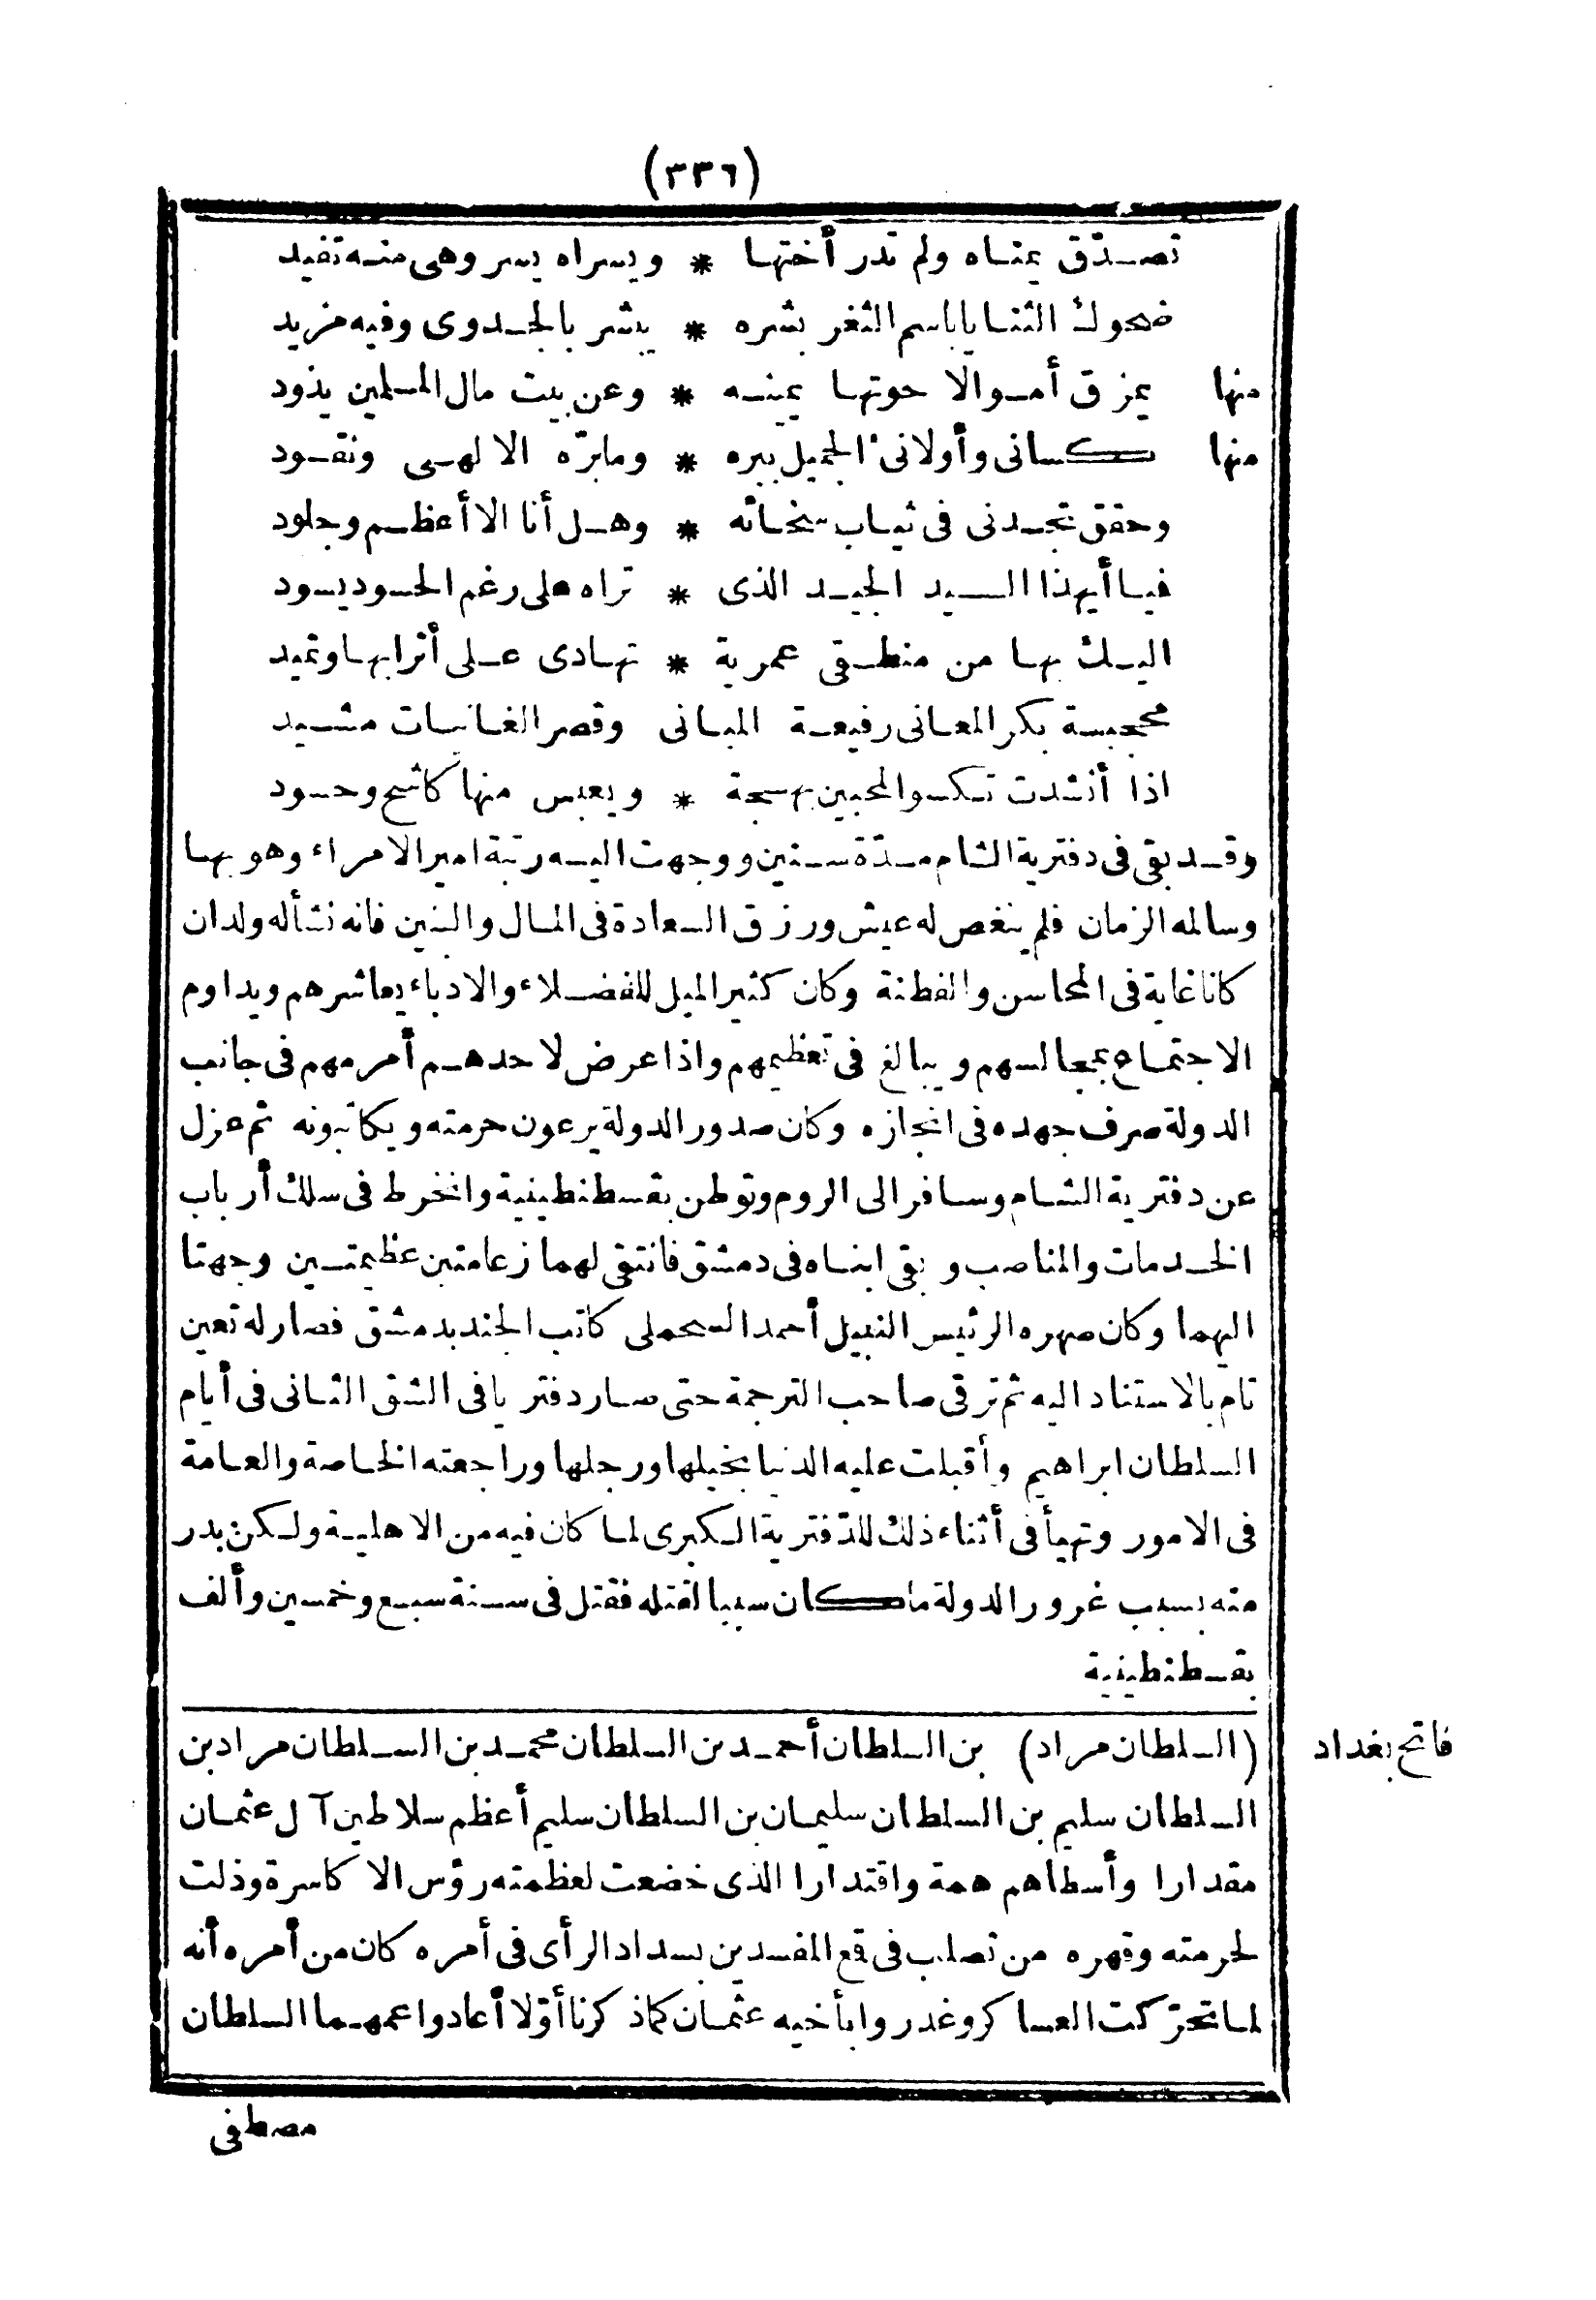 (٣٣٦)
تصدّق يمناه ولم تدر أختها * ويسراه يسر وهى منه تفيد
ضحوك الثنايا باسم الثغر بشره * يبشر بالجدوى وفيه مزيد
منها يمزق أموالا حوتها يمينه * وعن بيت مال المسلمين يذود
منها كسانى وأولانى الجميل ببره * وما برّه الا لهى ونقود
وحقق تجدنى فى ثياب سخائه * وهل أنا الا أعظم وجلود
فيا أيهذا السيد الجيد الذى * تراه على رغم الحسود يسود
اليك بها من منطقى عمرية * تهادى على أترابها وتميد
محجبة بكر المعانى رفيعة المبانى وقصر الغانيات مشيد
اذا أنشدت تكسو المحبين بهجة * ويعبس منها كاشح وحسود
وقد بقى فى دفترية الشام مدّة سنين ووجهت اليه رتبة امير الامراء وهو بها
وسالمه الزمان فلم ينغص له عيش ورزق السعادة فى المال والبنين فانه نشأله ولدان
كانا غاية فى المحاسن والفطنة وكان كثير الميل للفضلاء والادباء يعاشرهم ويداوم
الاجتماع بمجالسهم ويبالغ فى تعظيمهم واذا عرض لاحدهم أمر مهم فى جانب
الدولة صرف جهده فى انجازه وكان صدور الدولة يرعون حرمته ويكاتبونه ثم عزل
عن دفترية الشام وسافر الى الروم وتوطن بقسطنطينية وانخرط فى سلك أرباب
الخدمات والمناصب وبقى ابناه فى دمشق فانتقى لهما زعامتين عظيمتين وجهتا
اليهما وكان صهره الرئيس النبيل أحمد السحملى كاتب الجند بدمشق فصار له تعين
تام بالاستناد اليه ثم ترقى صاحب الترجمة حتى صار دفتريا فى الشق الثانى فى أيام
السلطان ابراهيم وأقبلت عليه الدنيا بخيلها ورجلها وراجعته الخاصة والعامة
فى الامور وتهيأ فى أثناء ذلك للدّفترية الكبرى لما كان فيه من الاهلية ولكن بدر
منه بسبب غرور الدولة ما كان سببا لقتله فقتل فى سنة سبع وخمسين وألف
بقسطنطينية
(السلطان مراد) بن السلطان أحمد بن السلطان محمد بن السلطان مراد بن
فاتح بغداد
السلطان سليم بن السلطان سليمان بن السلطان سليم أعظم سلاطين آل عثمان
مقدارا وأسطاهم همة واقتدارا الذى خضعت لعظمته رؤس الاكاسرة وذلت
لحرمته وقهره من تصلب فى قمع المفسدين بسداد الرأى فى أمره كان من أمره أنه
لما تحرّكت العساكر وغدروا بأخيه عثمان كما ذكرنا أوّلا أعادوا عمهما السلطان
مصطفى